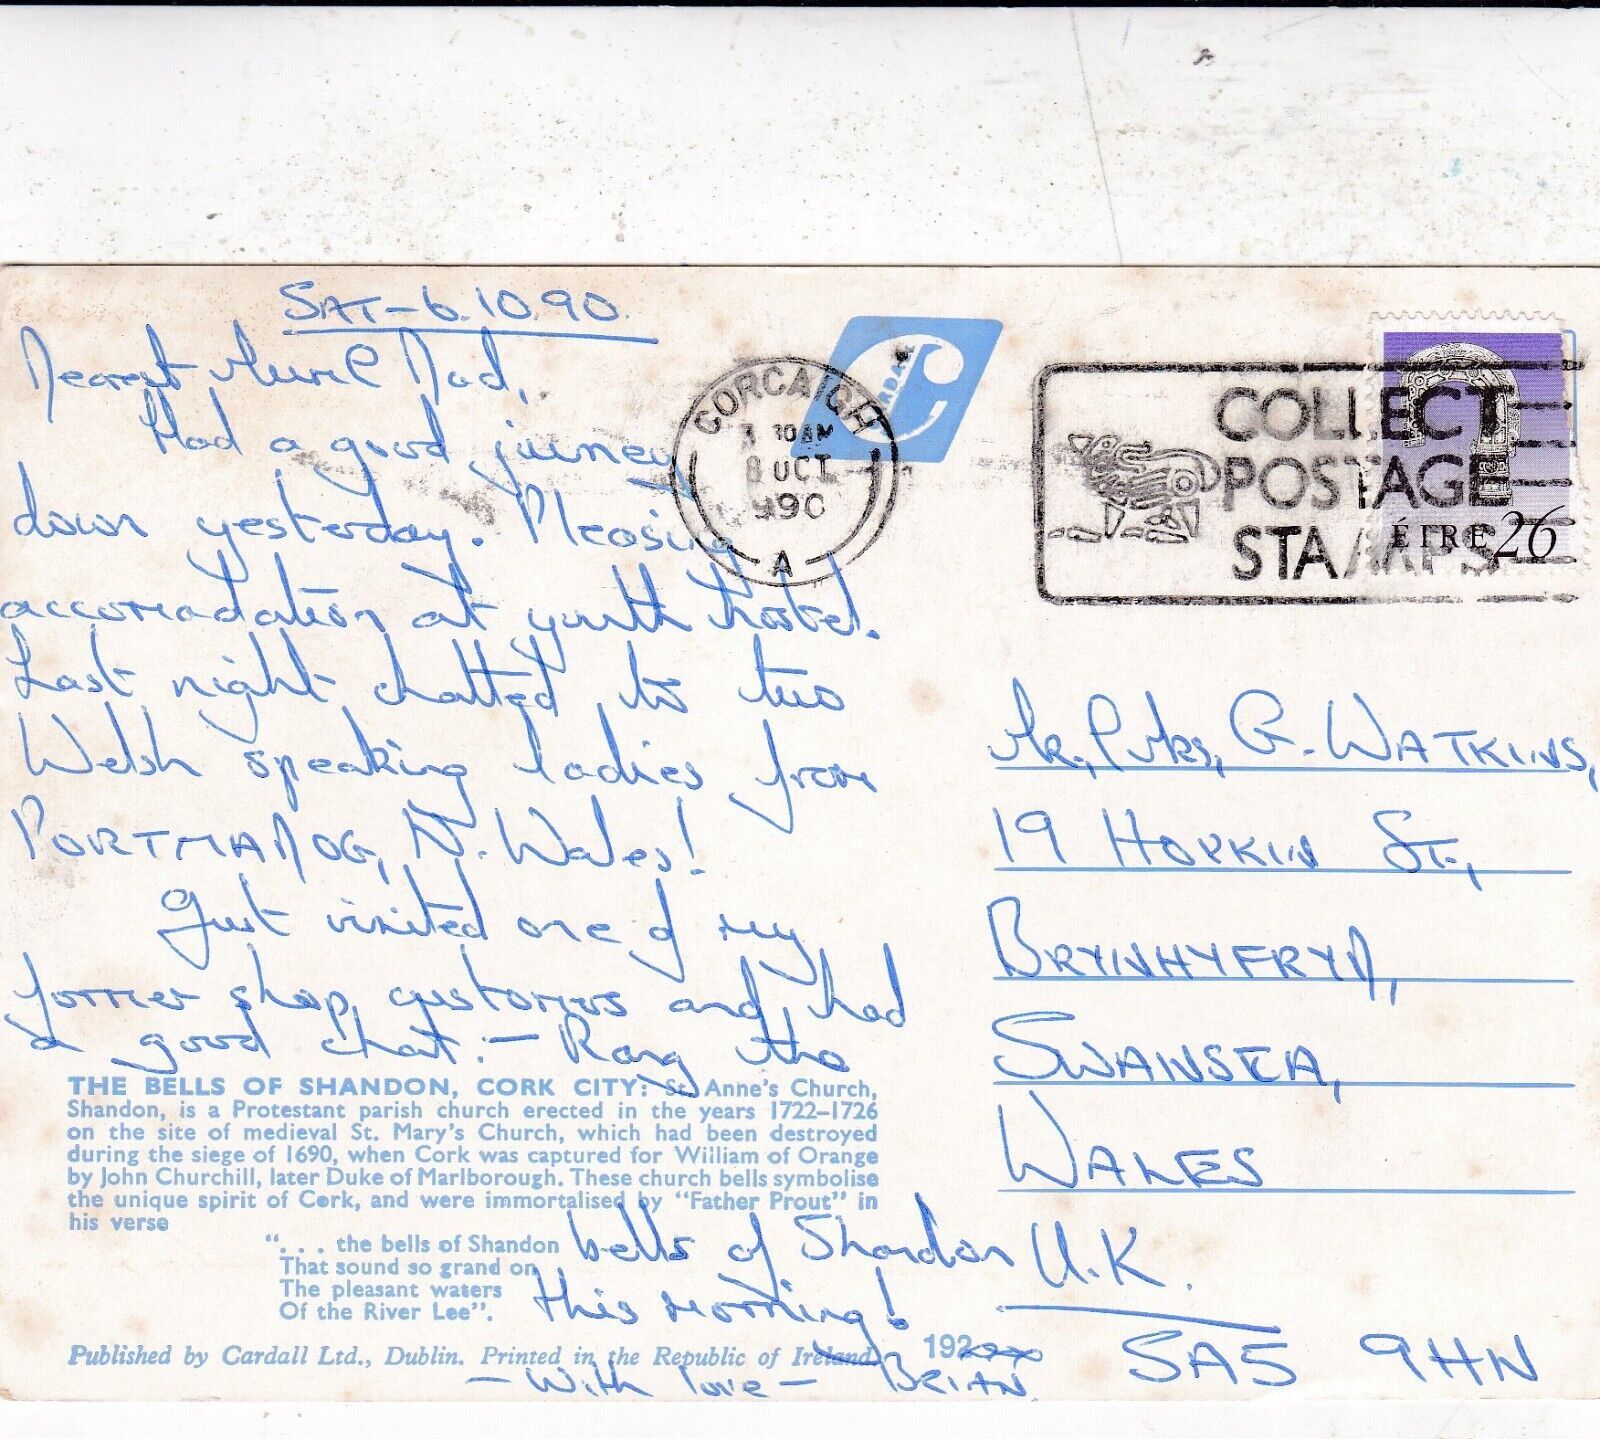 SAT - 6.10.90.
Dearest Mum & Dad,
Had a good journey
down yesterday. Pleasing
accomodation at youth hostel.
Last night chatted to two
Welsh speaking ladies from
PORTMADOG, N. Wales!
Just visited one of my
former shop customers and had
a good chat. - Rang the
bells of Shandon
this morning!
- With love - BRIAN.
THE BELLS OF SHANDON, CORK CITY: St. Anne's Church,
Shandon, is a Protestant parish church erected in the years 1722-1726
on the site of medieval St. Mary's Church, which had been destroyed
during the siege of 1690, when Cork was captured for William of Orange
by John Churchill, later Duke of Marlborough. These church bells symbolise
the unique spirit of Cork, and were immortalised by "Father Prout" in
his verse
". . . the bells of Shandon
That sound so grand on
The pleasant waters
Of the River Lee".
Published by Cardall Ltd., Dublin. Printed in the Republic of Ireland
192
CORCAIGH
8 OCT
1990
A
COLLECT
POSTAGE
STAMPS
ÉIRE 26
Mr, & Mrs, G. WATKINS,
19 HOPKIN ST.,
BRYNHYFRYD,
SWANSEA,
WALES
U.K.
SA5 9HN